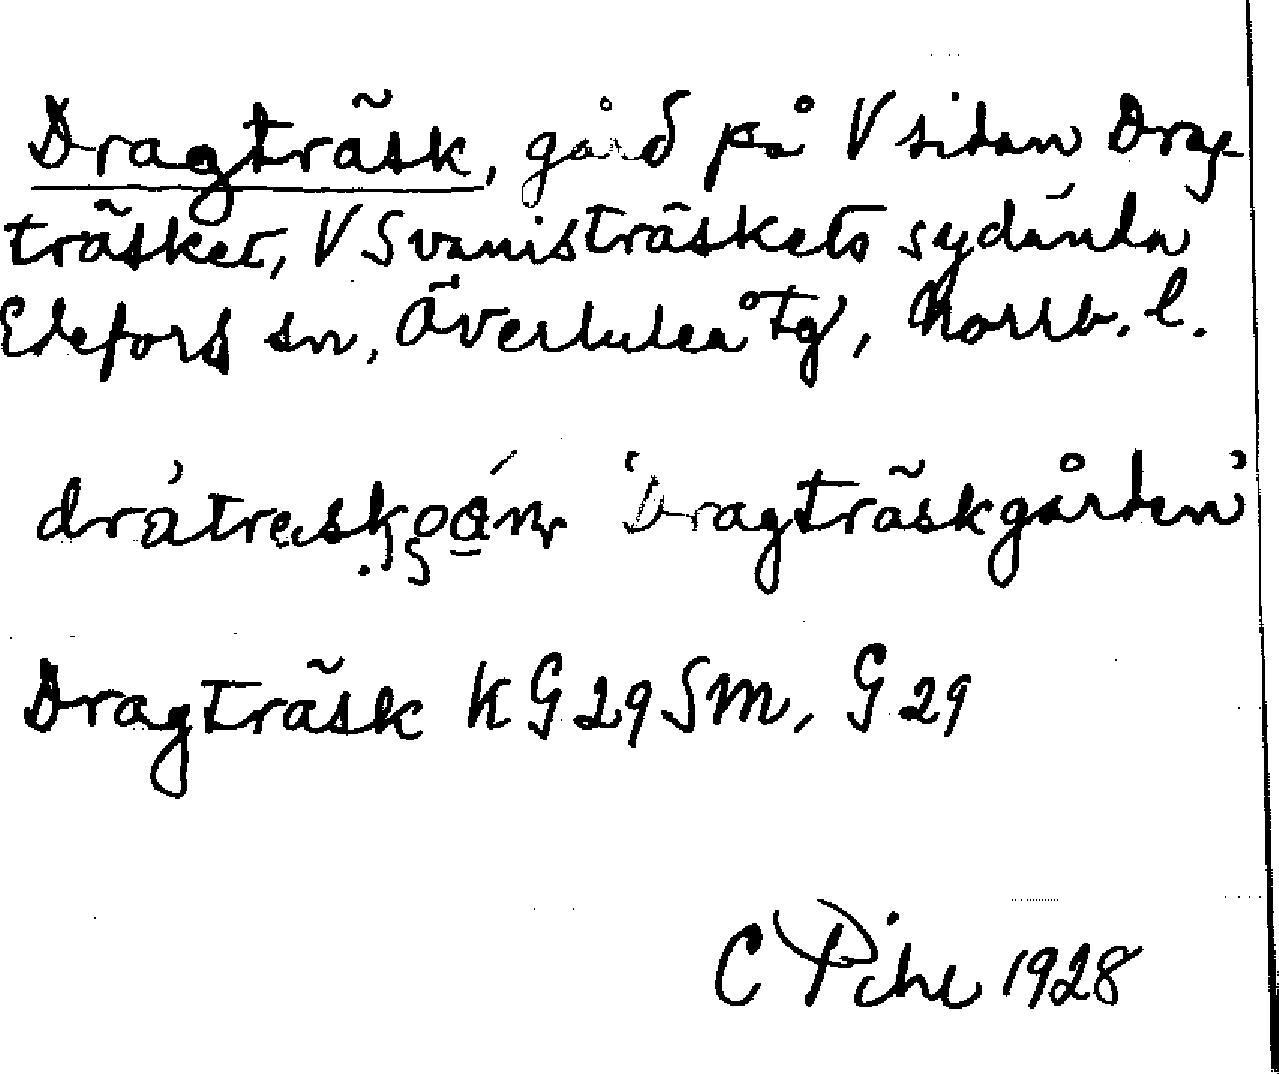 Dragträsk, gård på V sidan Drag-
träsket, V Svanisträskets sydända
Edefors sn, Överluleå Tg, Norrb. l.
'Dragträskgården'
Dragträsk KG29SM, G29
C Pihl 1928